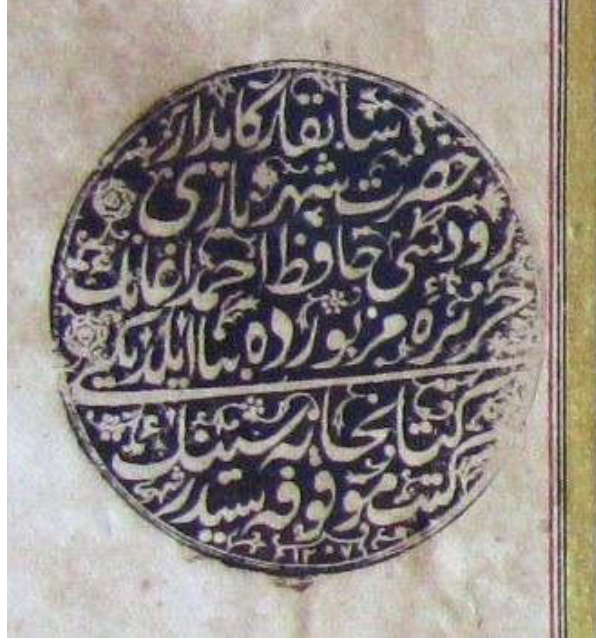 سابقا ركابدار
حضرت شهرياری
رودسی حافظ احمد اغانك
جزيرهٔ مزبورده بنا ايلديكی
كتابخانه سنك
كتب موقوفه سيدر
١٢٠٧